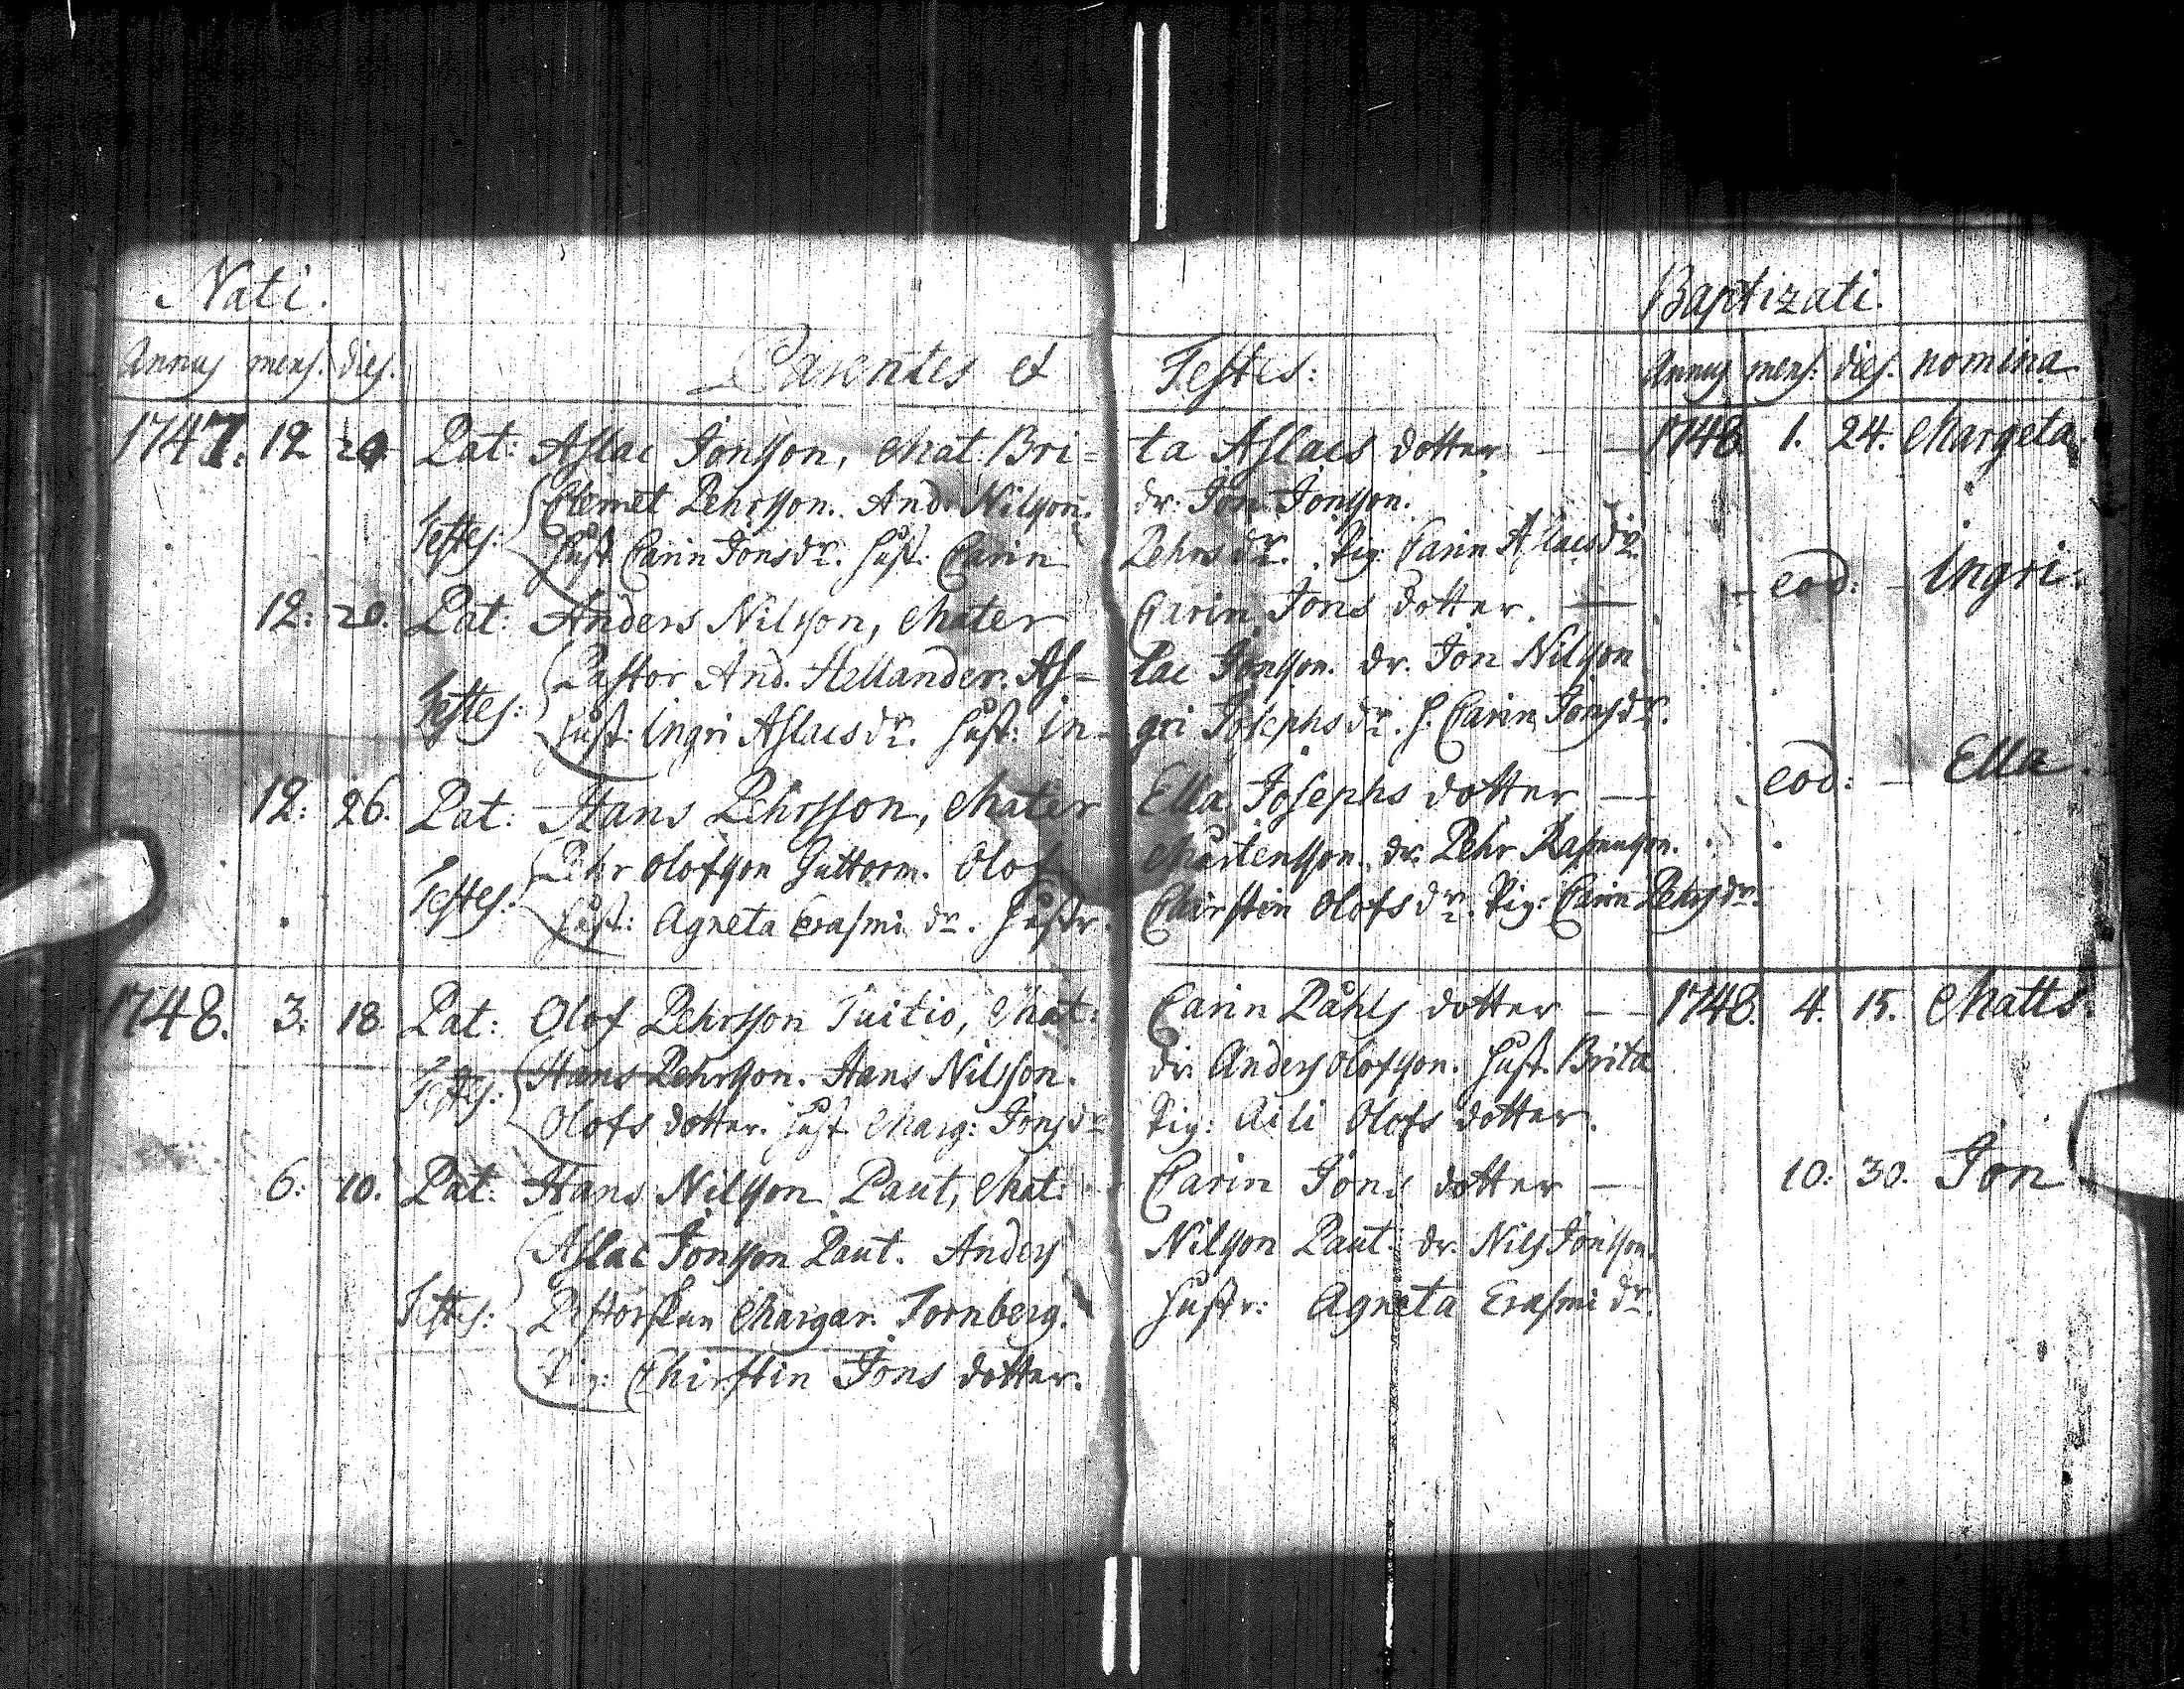 Nati. Baptizati.
Annus mens. dies. Parentes et Testes: Annus mens: dies. nomina
1747. 12 20 Pat: Aslac Jonsson, Mat: Bri= ta Aslacs dotter — 1748. 1. 24. Margeta.
Testes: Clemet Pehrsson. And. Nilsson. dr. Jon Jonsson.
Hust. Carin Jons dr. Hust: Carin Pehrs dr. Pig: Carin Aslacs dr.
12: 20. Pat: Anders Nilsson, Mater Carin Jons dotter. — eod: — Ingri.
Testes: Pastor And. Hellander. As= lac Jonsson. dr. Jon Nilsson
Hust: Ingri Aslacs dr. Hust: In- gri Josephs dr. H. Carin Jons dr.
12: 26. Pat: Hans Pehrsson, Mater Ella Josephs dotter — eod: — Ella.
Testes: Pehr Olofsson Guttorm. Olof Mårtensson. dr. Pehr
Hust: Agneta Erasmi dr. Hustr. Chirstin Olofs dr. Pig: Carin Pehrs dr.
1748. 3. 18 Pat: Olof Pehrsson Tuitio, Mat: Carin Påhls dotter — 1748. 4. 15. Matts.
Testes: Hans Pehrsson. Hans Nilsson. dr: Anders Olofsson. Hust. Brita
Olofs dotter. Hust. Marg: Jons dr Pig: Aili Olofs dotter.
6: 10. Pat: Hans Nilsson Paut, Mat: Carin Jons dotter — 10: 30. Jon
Aslac Jonsson Paut. Anders Nilsson Paut. dr. Nils Jonsson.
Testes: Pastorskan Margar. Tornberg. Hustr: Agneta Erasmi dr.
Pig: Chirstin Jons dotter.